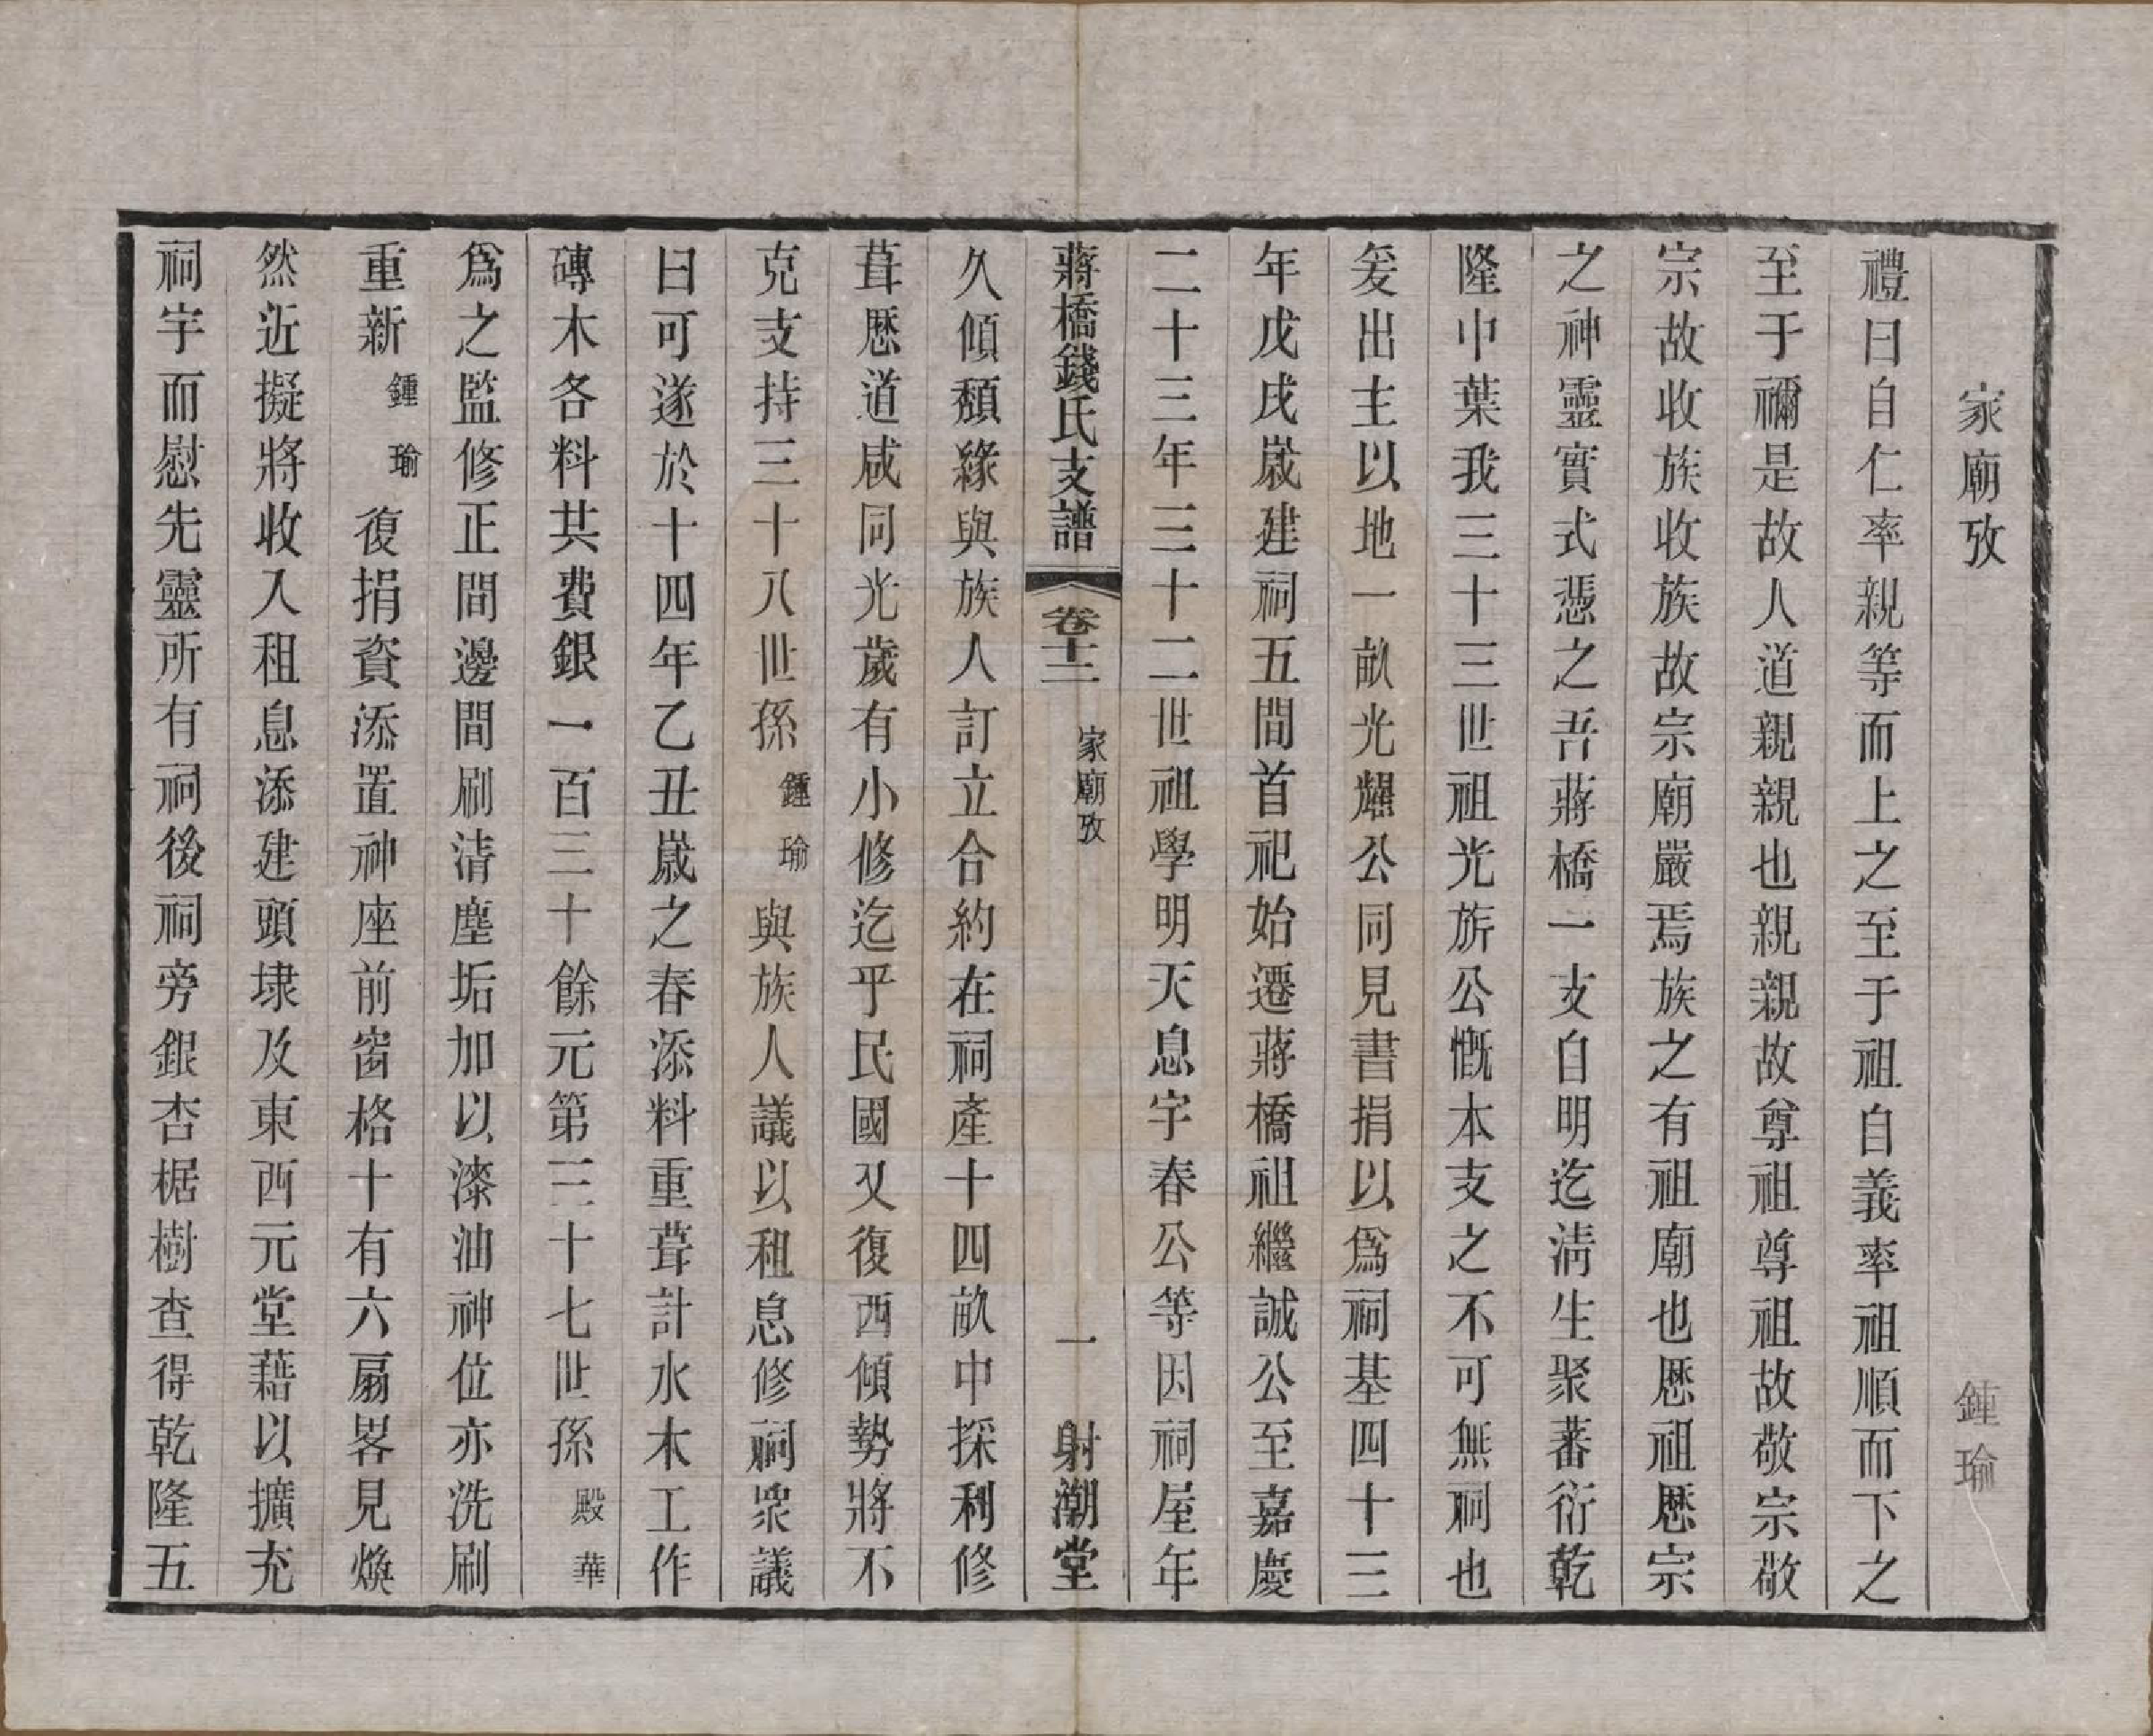 家廟攷　鍾瑜
禮曰自仁率親等而上之至于祖自義率祖順而下之
至于禰是故人道親親也親親故尊祖尊祖故敬宗敬
宗故收族收族故宗廟嚴焉族之有祖廟也歷祖歷宗
之神靈實式憑之吾蔣橋一支自明迄淸生聚蕃衍乾
隆中葉我三十三世祖光旂公慨本支之不可無祠也
爰出主以地一畝光燿公同見書捐以爲祠基四十三
年戊戌嵗建祠五間首祀始遷蔣橋祖繼誠公至嘉慶
二十三年三十二世祖學明天息宇春公等因祠屋年
蔣橋錢氏支譜　卷十二　家廟攷　一　射潮堂
久傾頹緣與族人訂立合約在祠產十四畝中採利修
葺歷道咸同光歲有小修迄乎民國又復西傾勢將不
克支持三十八世孫鍾瑜與族人議以租息修祠衆議
曰可遂於十四年乙丑嵗之春添料重葺計水木工作
磚木各料共費銀一百三十餘元第三十七世孫殿華
爲之監修正間邊間刷清塵垢加以漆油神位亦洗刷
重新鍾瑜復捐資添置神座前窗格十有六扇畧見煥
然近擬將收入租息添建頭埭及東西元堂藉以擴充
祠宇而慰先靈所有祠後祠旁銀杏椐樹查得乾隆五